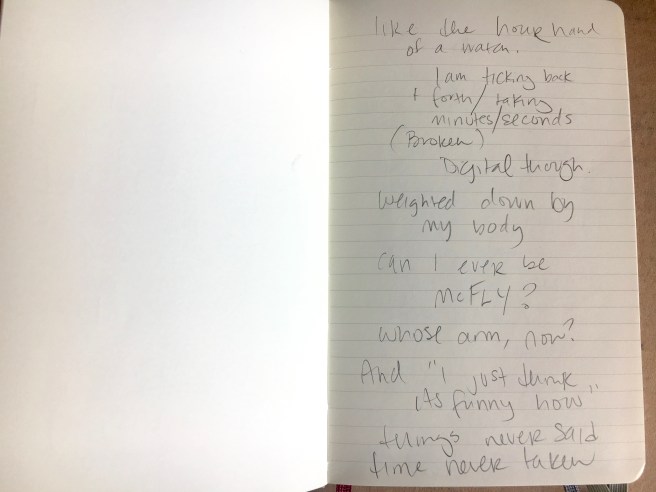 like the hour hand
of a watch.
I am ticking back
+ forth/taking
minutes/seconds
(Broken)
Digital though.
Weighted down by
my body
can I ever be
McFLY?
whose arm, now?
And "I just think
its funny how"
things never said
time never taken